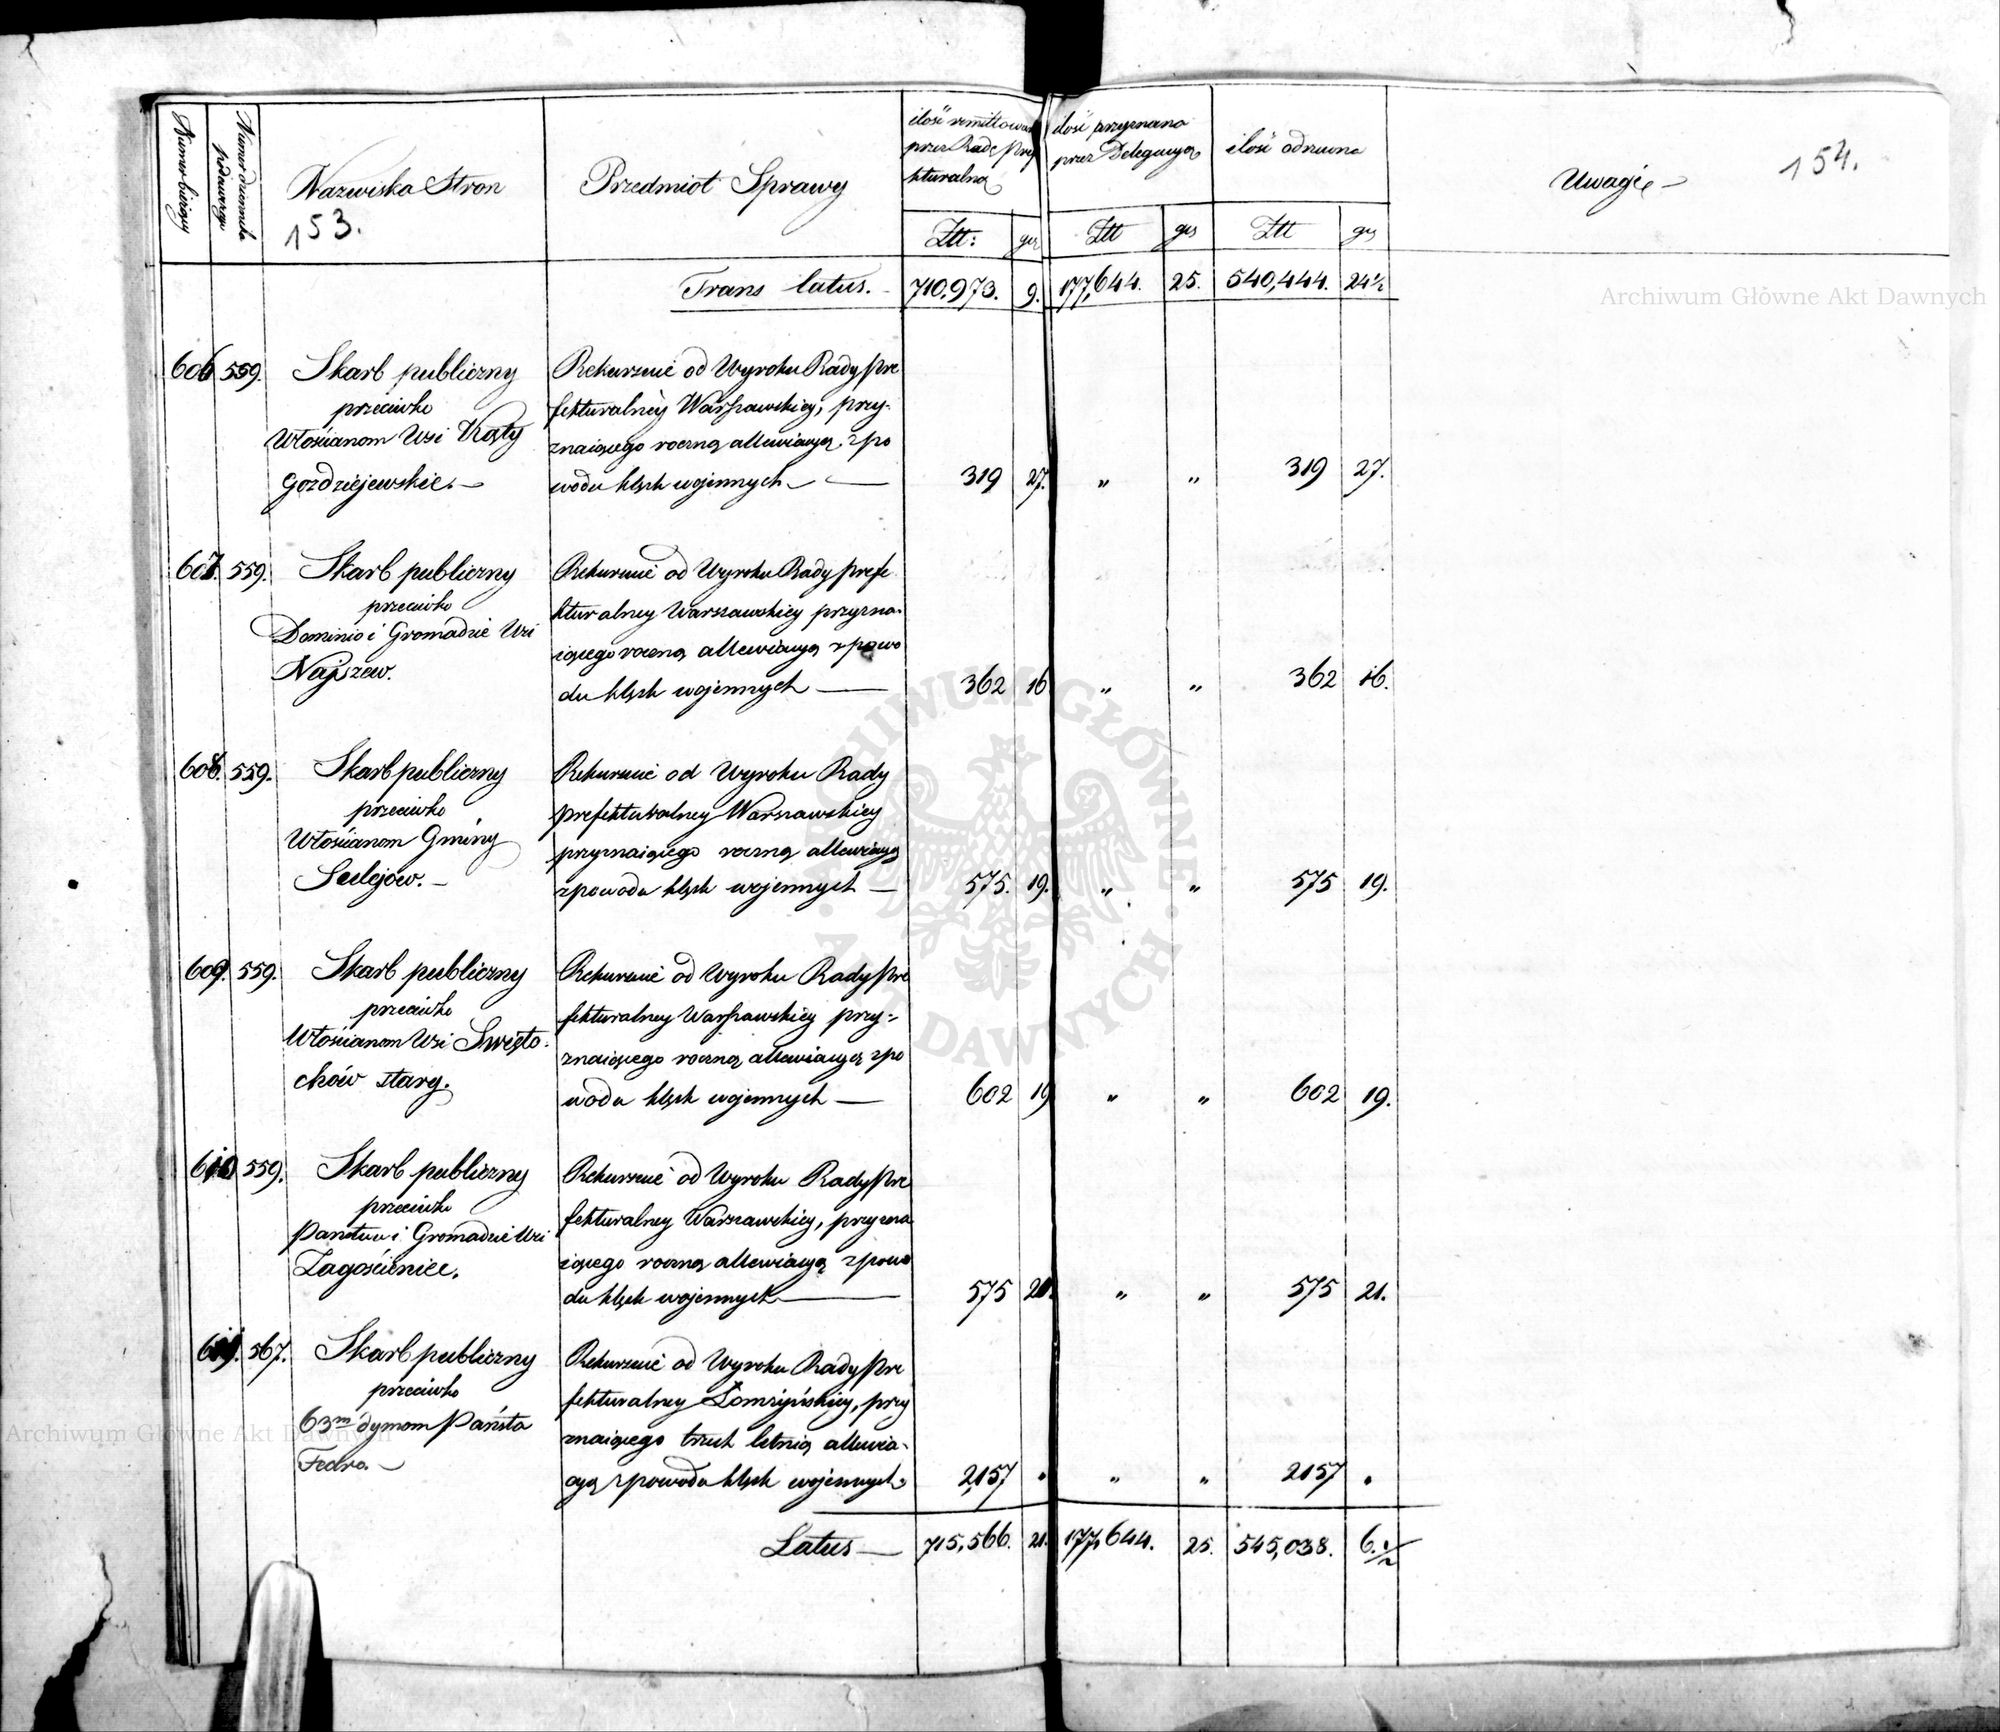 Numer bieżący
Numer dziennika podawczego
Nazwiska Stron
153.
Przedmiot Sprawy
ilość remittowana
przez Radę Pref
kturalną
ilość przyznana
przez Delegacyą
ilość odrzucona
Uwagie
154.
Ztt: gr Ztt grs Ztt grs
Trans latus. 710,973. 9. 177,644. 25. 540,444. 24½
Archiwum Główne Akt Dawnych
606 559. Skarb publiczny
przeciwko
Włościanom Wsi Kąty
Gozdziejewskie.
Rekurencie od Wyroku Rady Pre
fekturalney Warszawskiey, przy-
znaiącego roczną allewiacyą z po
wodu klęsk wojennych 319 27. " " 319 27.
607. 559. Skarb publiczny
przeciwko
Dominio i Gromadzie Wsi
Najszew.
Rekursucie od Wyroku Rady prefe
kturalney Warszawskiey przyzna-
iącego roczną allewiacyą z powo
du klęsk wojennych 362 16 " " 362 16.
608. 559. Skarb publiczny
przeciwko
Włościanom Gminy
Sulejow.
Rekursucie od Wyroku Rady
prefekturalney Warszawskiey
przyznaiącego roczną allewiacyą
z powodu klęsk wojennych 575. 19. " " 575 19.
609. 559. Skarb publiczny
przeciwko
Włościanom Wsi Święto-
chów stary.
Rekursucie od Wyroku Rady Pre
fekturalney Warszawskiey przy-
znaiącego roczną allewiacyą z po
wodu klęsk wojennych 602 19 " " 602 19.
610 559. Skarb publiczny
przeciwko
Państwu i Gromadzie Wsi
Zagościeniec.
Rekursucie od Wyroku Rady Pre
fekturalney Warszawskiey, przyzna
iącego roczną allewiacyą z powo
du klęsk wojennych 575 21. " " 575 21.
611. 567. Skarb publiczny
przeciwko
63m dymom Państa
Fedro.
Rekursucie od Wyroku Rady Pre
fekturalney Łomżyńskiey, przy
znaiącego trzech letnią allewia-
cyą z powodu klęsk wojennych 2,157 " " 2157
Archiwum Główne Akt Dawnych
Latus 715,566. 21. 177,644. 25. 545,038. 6.½
ARCHIWUM GŁÓWNE AKT DAWNYCH